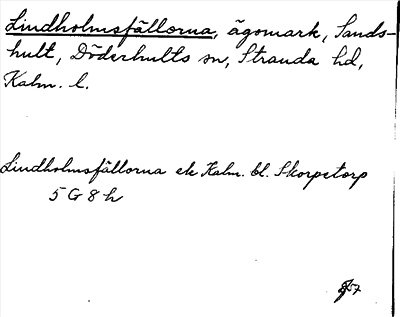 Lindholmsfällorna, ägomark, Sands-
hult, Döderhults sn, Stranda hd,
Kalm. l.
Lindholmsfällorna ek Kalm. bl. Skorpetorp
5 G 8 h